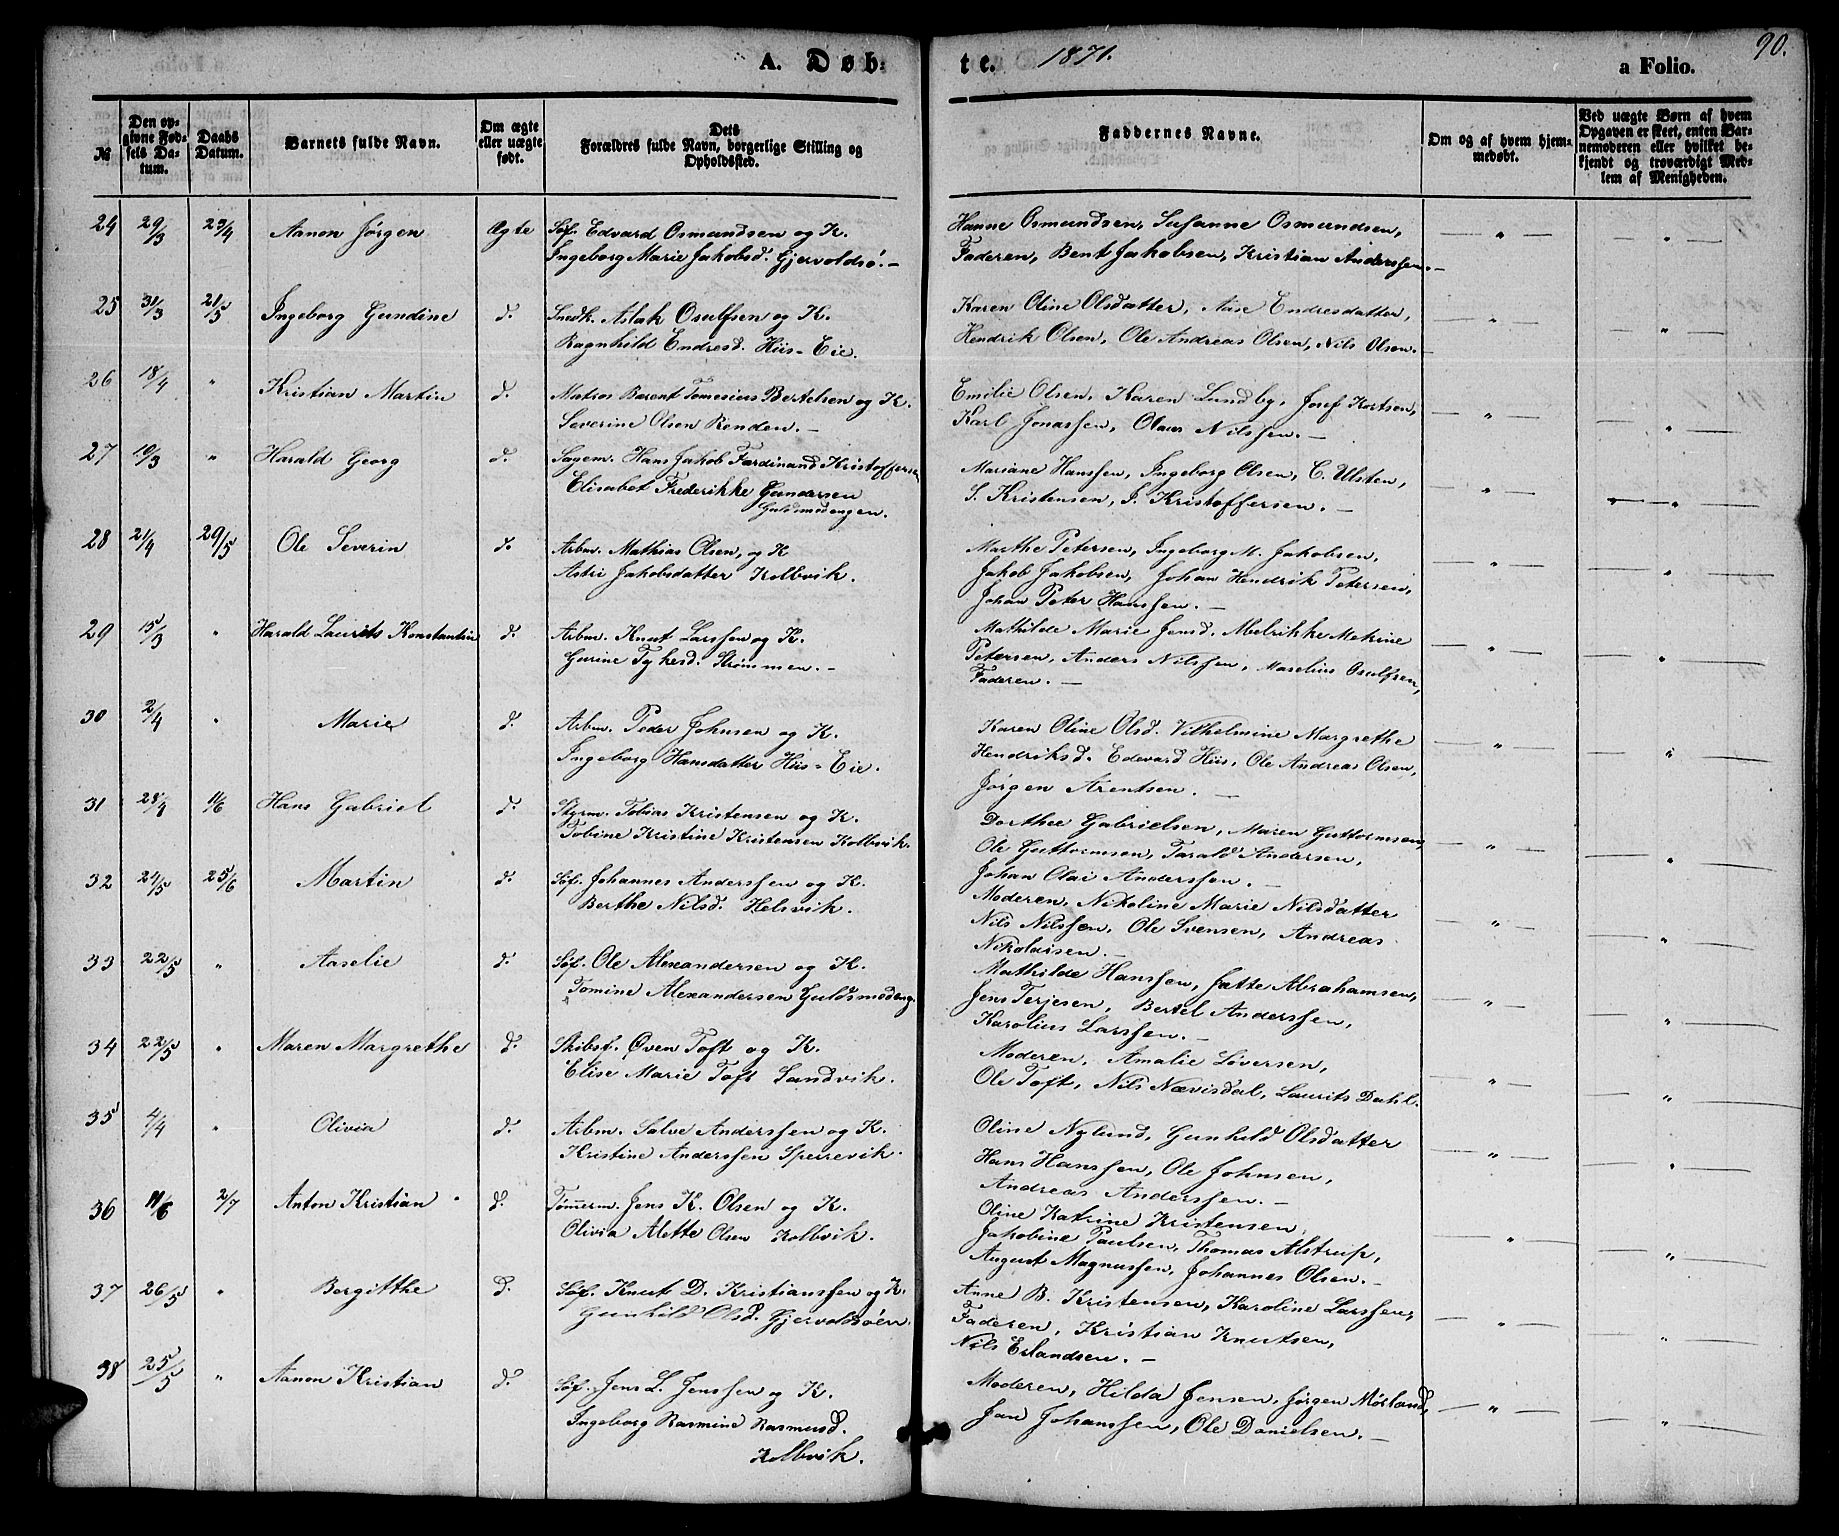 A. Døb-
te. 1871.
a Folio. 90.
№
Den op-
givne Fød-
sels Da-
tum.
Daabs
Datum.
Barnets fulde Navn.
Om ægte
eller uægte
født.
Dets
Forældres fulde Navn, borgerlige Stilling og
Opholdssted.
Faddernes Navne.
Om og af hvem hjem-
medøbt.
Ved uægte Børn af hvem
Opgaven er skeet, enten Bar-
nemoderen eller hvilket be-
kjendt og troværdigt Med-
lem af Menigheden.
24 29/3 23/4 Aanon Jørgen Ægte Søf. Edvard Osmundsen og K.
Ingeborg Marie Jakobsd. Gjervoldsø. -
Hanne Osmundsen, Susanne Osmundsen,
Faderen, Bent Jakobsen, Kristian Anderssen. -
25 31/3 21/5 Ingeborg Gundine d. Snedk. Aslak Osulfsen og K.
Ragnhild Endresd. Hiis-Eie.
Karen Oline Olsdatter, Aase Endresdatter,
Hendrik Olsen, Ole Andreas Olsen, Nils Olsen. -
26 18/4 " Kristian Martin d. Matros Berent Tomesius Bertelsen og K.
Severine Olsen Renden. -
Emilie Olsen, Karen Lundby, Josef Kortsen,
Karl Jonassen, Olaus Nilssen. -
27 10/3 " Harald Georg d. Sagem. Hans Jakob Ferdinand Kristoffersen
Elisabet Frederikke Gundersen
Guldsmedengen.
Mariane Hanssen, Ingeborg Olsen, C. Ulsten,
S. Kristensen, J. Kristoffersen. -
28 21/4 29/5 Ole Severin d. Arbm. Mathias Olsen, og K
Astri Jakobsdatter Kolbvik.
Marthe Petersen, Ingeborg M. Jakobsen,
Jakob Jakobsen, Johan Hendrik Petersen,
Johan Peter Hanssen. -
29 15/3 " Harald Laurits Konstantin d. Arbm. Knut Larssen og K.
Gurine Tykesd. Strømmen. -
Mathilde Marie Jensd. Mulrikke Mekine
Petersen, Anders Nilssen, Maselius Osulfsen,
Faderen. -
30 2/4 " Marie d. Arbm. Peder Johnsen og K.
Ingeborg Hansdatter Hiis-Eie.
Karen Oline Olsd. Vilhelmine Margrethe
Hendriksd. Edevard Hiis, Ole Andreas Olsen,
Jørgen Arentsen. -
31 28/4 11/6 Hans Gabriel d. Styrm. Tobias Kristensen og K.
Tobine Kristine Kristensen Kolbvik.
Dorthee Gabrielsen, Maren Guttormsen,
Ole Guttormsen, Tarald Andersen,
Johan Olai Anderssen. -
32 24/5 25/6 Martin d. Søf. Johannes Anderssen og K.
Berthe Nilsd. Helsvik.
Moderen, Nikoline Marie Nilsdatter
Nils Nilssen, Ole Svensen, Andreas
Nikolaisen. -
33 22/5 " Aaselie d. Søf. Ole Alexandersen og K.
Tomine Alexandersen Guldsmedeng.
Mathilde Hanssen, Jatte Abrahamsen,
Jens Terjesen, Bertel Anderssen,
Karolius Larssen. -
34 22/5 " Maren Margrethe d. Skibsf. Øven Toft og K.
Elise Marie Toft Sandvik.
Moderen, Amalie Løversen,
Ole Toft, Nils Nævisdal, Laurits Dahl.
35 4/4 " Olivia d. Arbm. Salve Anderssen og K.
Kristine Anderssen Sperrevik.
Oline Nylund, Gunhild Olsdatter
Hans Hanssen, Ole Johnsen,
Andreas Anderssen. -
36 11/6 2/7 Anton Kristian d. Tømerm. Jens K. Olsen og K.
Olivia Alette Olsen Kolbvik.
Oline Katrine Kristensen
Jakobine Paulsen, Thomas Alstrup,
August Magnussen, Johannes Olsen. -
37 26/5 " Bergitthe d. Søf. Knut D. Kristianssen og K.
Gunhild Olsd. Gjervoldsøen.
Anne B. Kristensen, Karoline Larssen,
Faderen, Kristian Knutsen,
Nils Erlandsen. -
38 25/5 " Aanon Kristian d. Søf. Jens L. Jenssen og K.
Ingeborg Rasmine Rasmusd.
Kolbvik.
Moderen, Hilda Jensen, Jørgen Mørland,
Jan Johanssen, Ole Danielsen. -